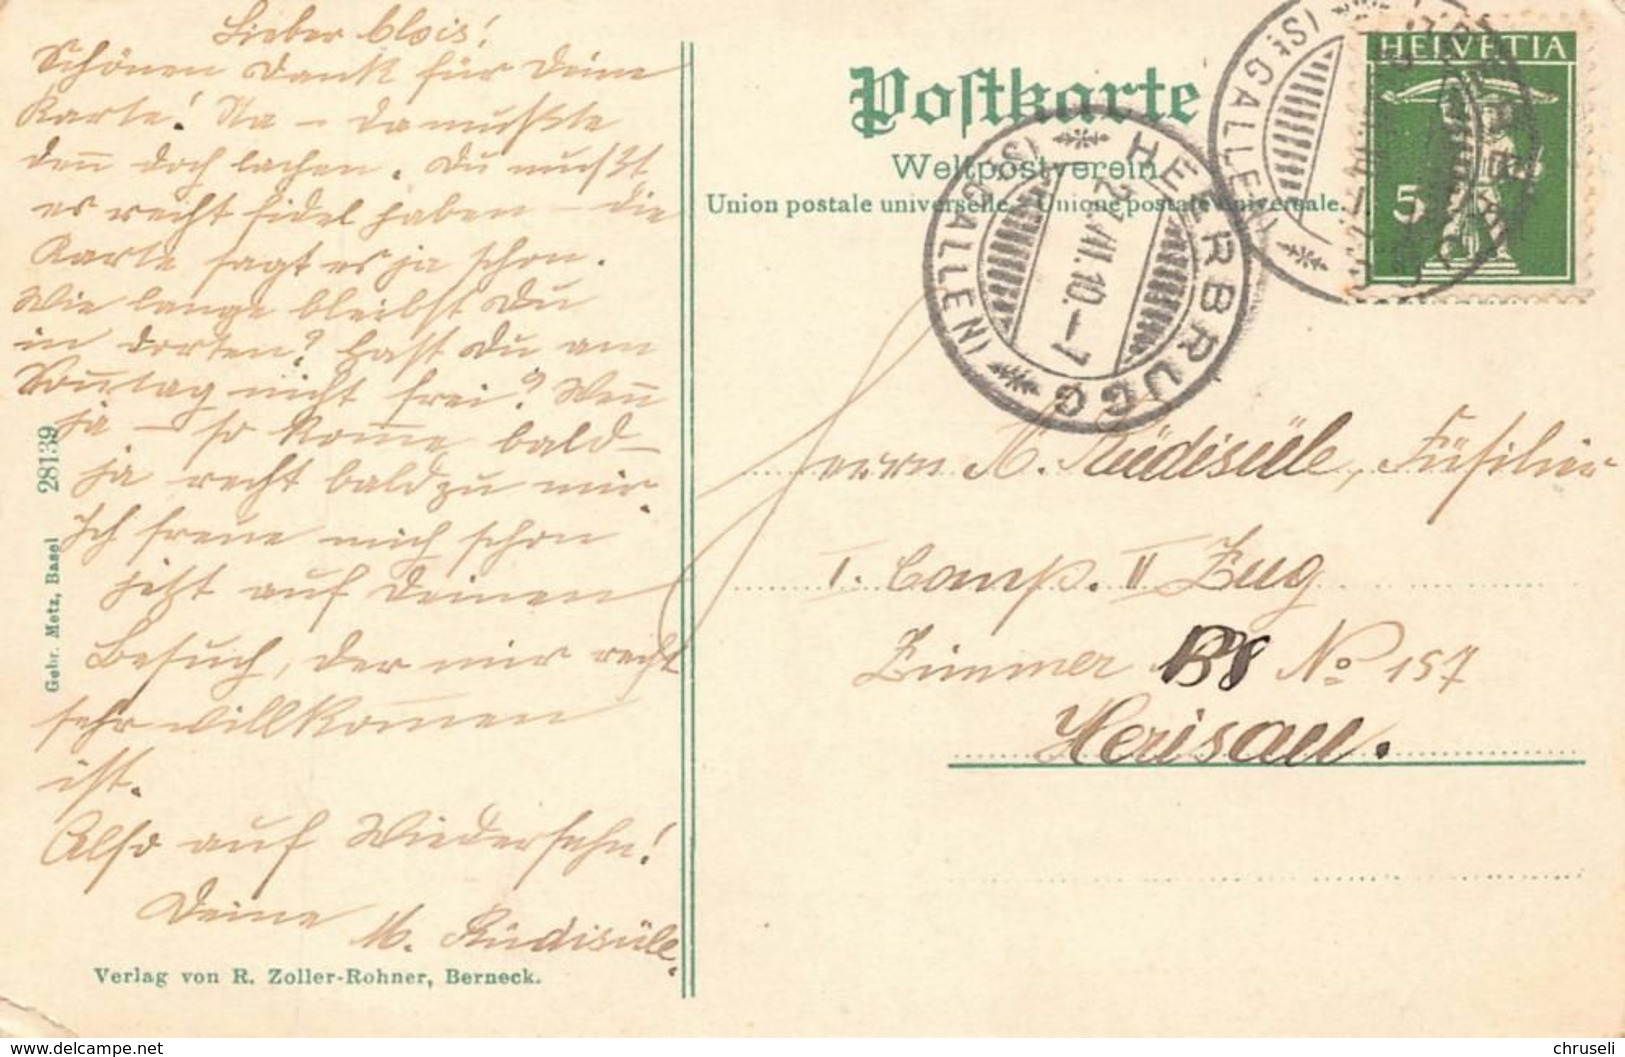 Lieber Alois!
Schönen Dank für Deine
Karte! Na – da mußte
ich doch lachen. Du mußt
es recht fidel haben – die
Karte sagt es ja schon.
Wie lange bleibst Du
in dorten? Hast Du am
Sonntag nicht frei? Wenn
ja – so komme bald –
ja recht bald zu mir.
Ich freue mich schon
jetzt auf Deinen
Besuch, der mir recht
sehr willkommen
ist.
Also auf Wiedersehn!
Deine
M. Rüdisüle.
Verlag von R. Zoller-Rohner, Berneck.
Gebr. Metz, Basel 28139
Postkarte
Weltpostverein
Union postale universelle. Unione postale universale.
HEERBRUGG
(ST GALLEN)
10.–7
HEERBRUGG
(ST GALLEN)
HELVETIA
5
Herrn A. Rüdisüle, Füsilier
I. Comp. II Zug
Zimmer No 157
Herisau.
www.delcampe.net
chruseli